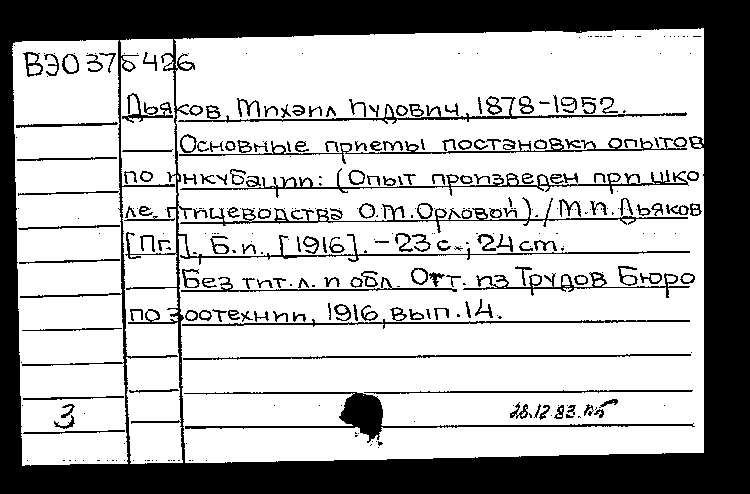 ВЭО 375426
Дьяков, Михаил Иудович, 1878-1952.
Основные приемы постановки опытов
по инкубации: (Опыт произведен при шко
ле птицеводства О.М.Орловой). / М.И.Дьяков
[Пг.]., Б.и., [1916]. – 23 с.; 24 cm.
Без тит.л. и обл. Отт. из Трудов Бюро
по зоотехнии, 1916, вып. 14.
3
28.12.83.